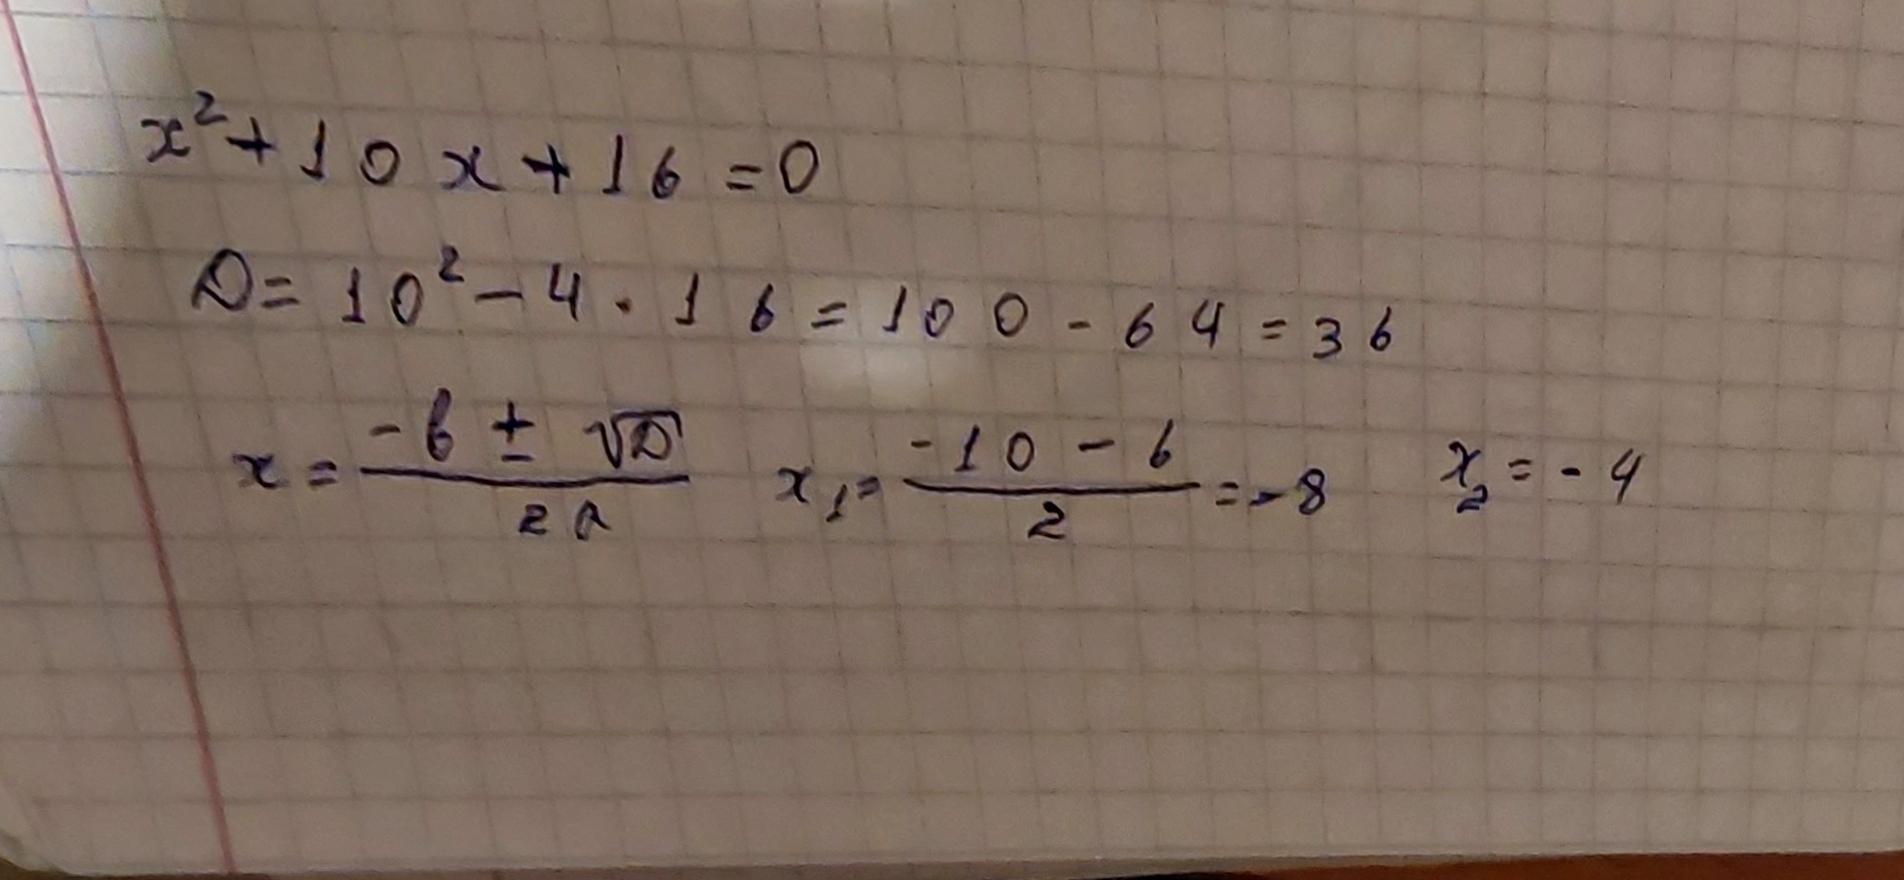 x² + 10x + 16 = 0
D = 10² - 4 · 16 = 100 - 64 = 36
x = (-b ± √D) / 2a   x₁ = (-10 - 6) / 2 = -8   x₂ = -4